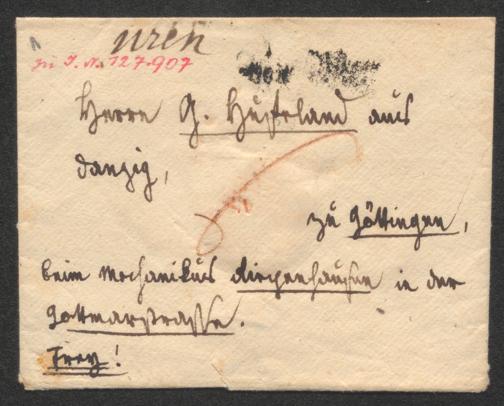 zu I. N. 127.907
Herrn G. Hufeland aus
Danzig,
zu Göttingen,
beim Mechanikus Riepenhausen in der
Gottmarstrasse.
Frey!